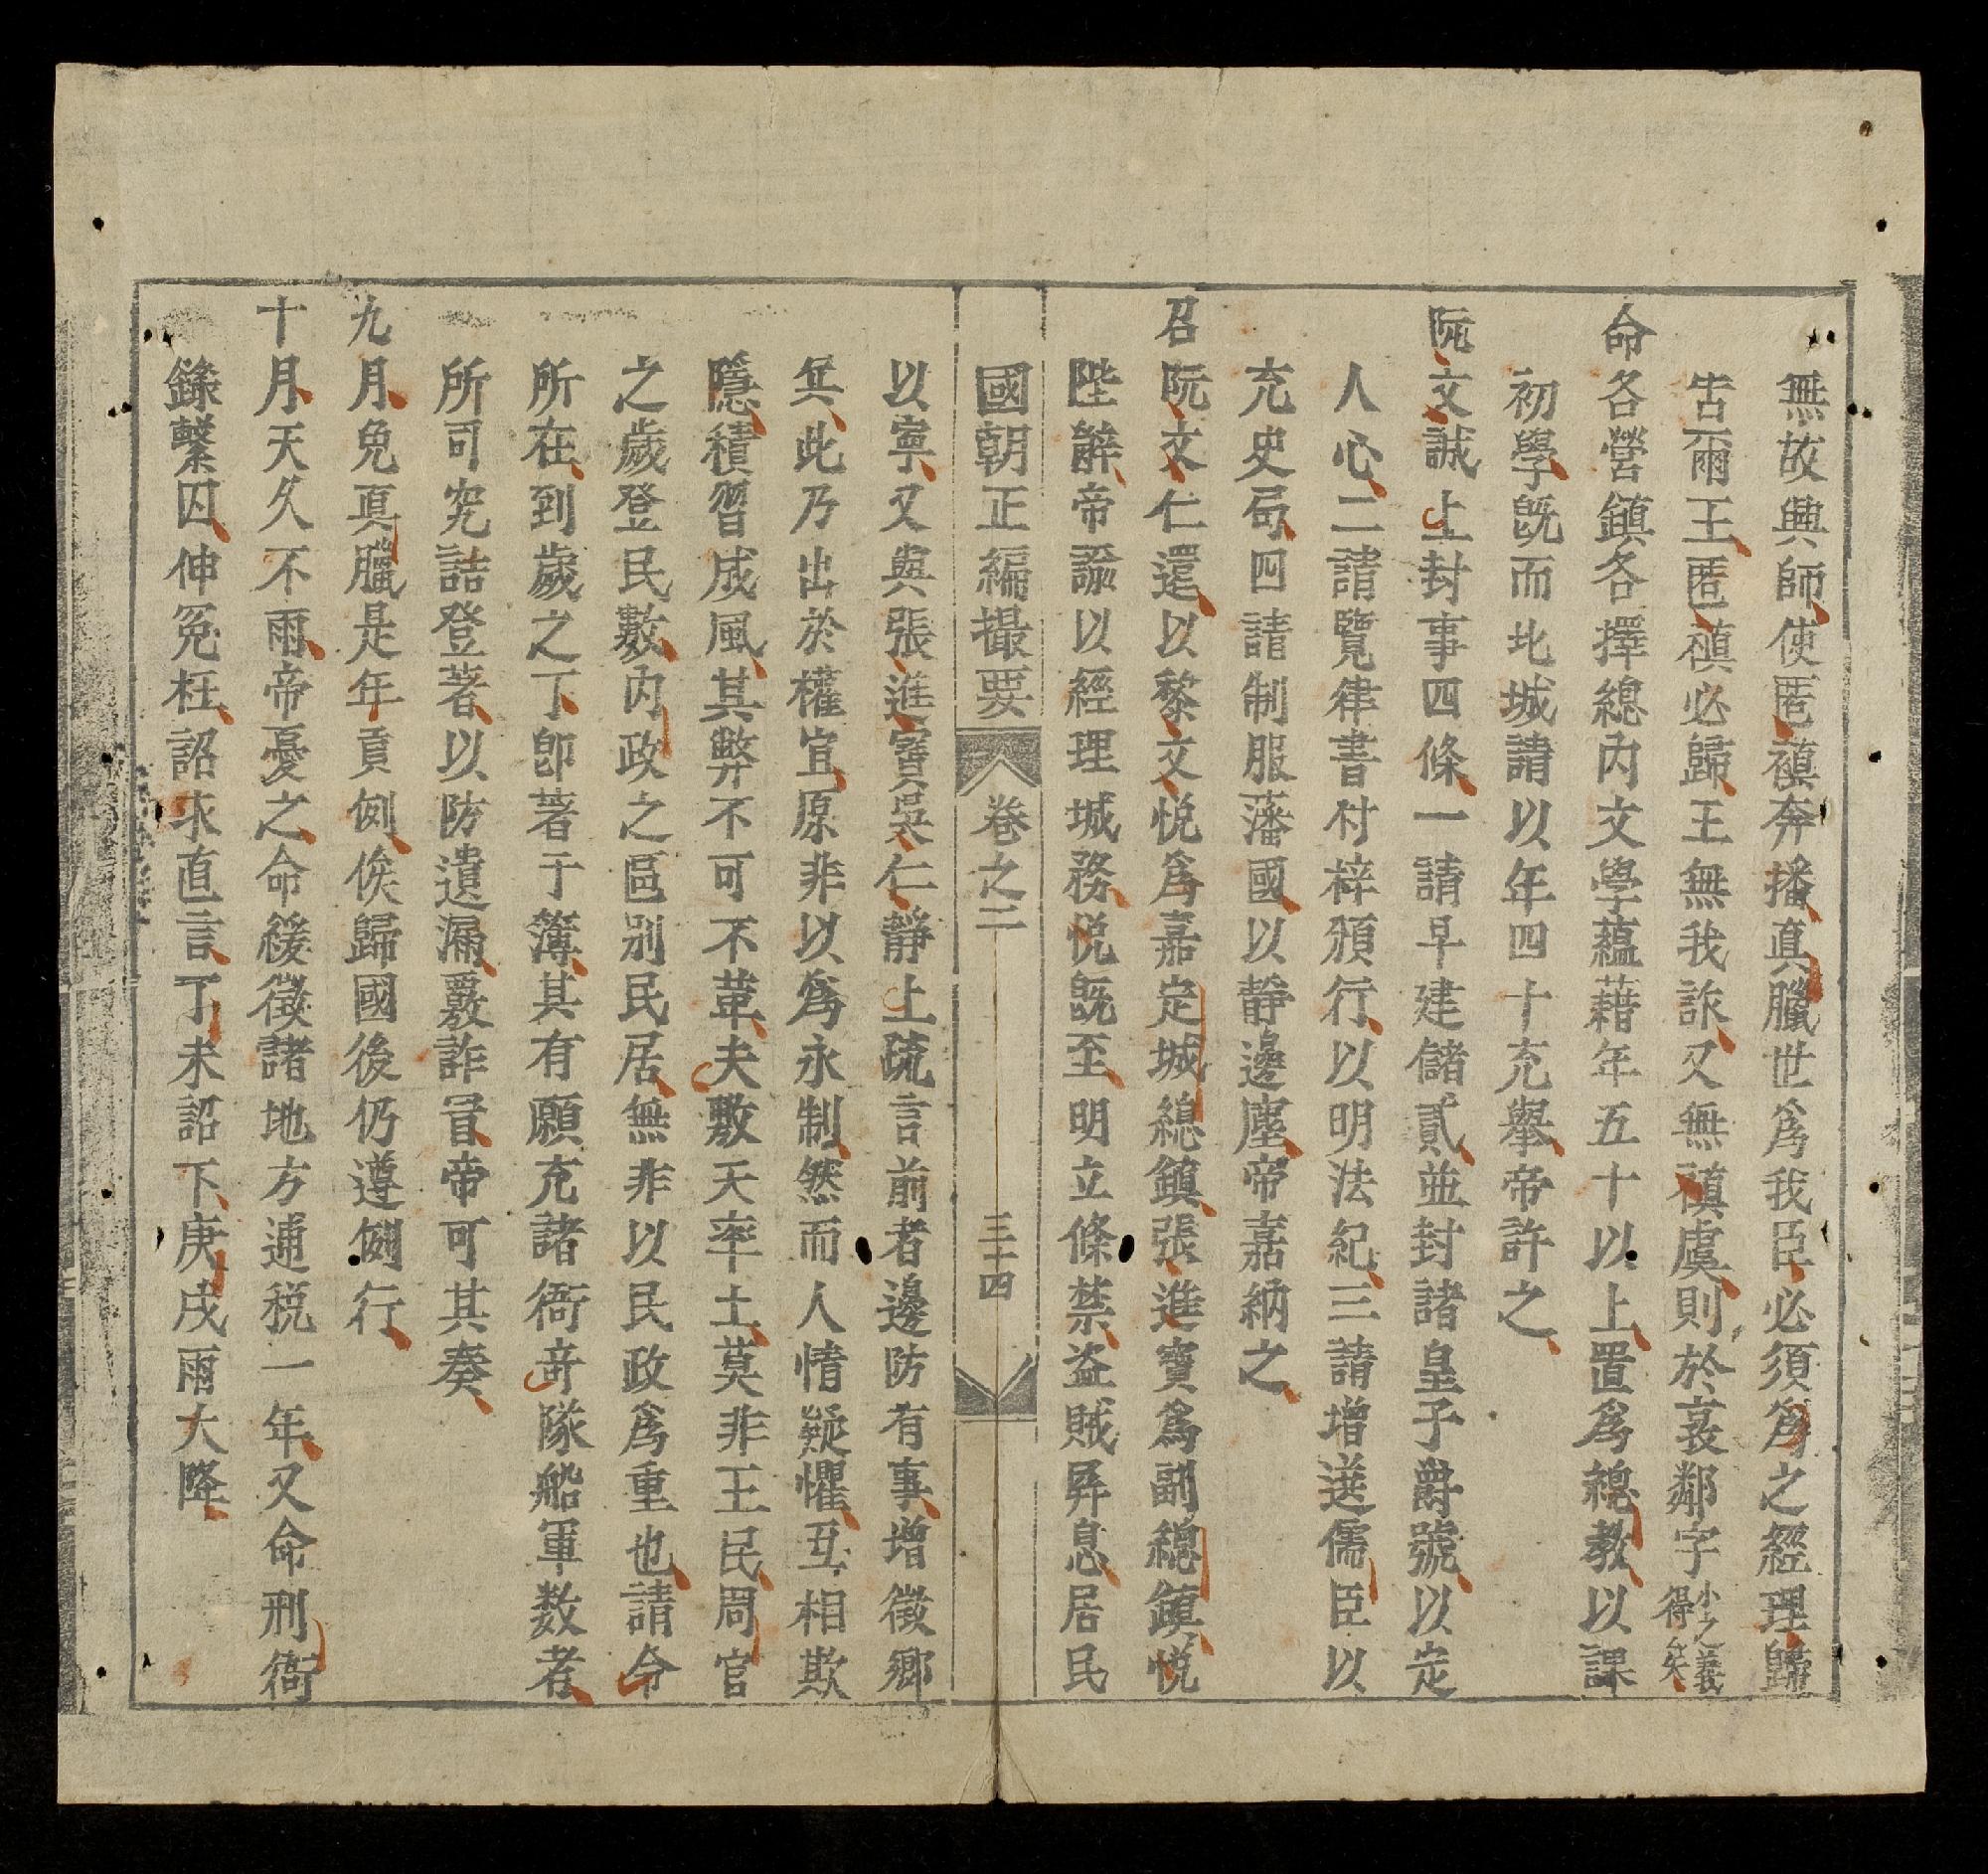 無故興師使匿禛奔播真臘世爲我臣必須爲之經理歸
告爾王匿禛必歸王無我詐又無禛虞則於哀鄰字小之義得矣
命各營鎮各擇總內文學蘊藉年五十以上置爲總教以課
初學旣而北城請以年四十充舉帝許之
阮文誠上封事四條一請早建儲貳並封諸皇子爵號以定
人心二請覽律書付梓頒行以明法紀三請增選儒臣以
充史局四請制服藩國以靜邊塵帝嘉納之
召阮文仁還以黎文悅爲嘉定城總鎮張進寶爲副總鎮悅
陛辭帝諭以經理城務悅旣至明立條禁盜賊屏息居民
國朝正編撮要 卷之二 三十四
以寧又與張進寶吳仁靜上疏言前者邊防有事增徵鄉
兵此乃出於權宜原非以爲永制然而人情疑懼互相欺
隱積習成風其弊不可不革夫敷天率土莫非王民周官
之歲登民數內政之區別民居無非以民政爲重也請令
所在到歲之丁卽著于簿其有願充諸衙奇隊船軍数者
所司究詰登著以防遺漏覈詐冒帝可其奏
九月免真臘是年貢例俟歸國後仍遵例行
十月天久不雨帝憂之命緩徵諸地方逋稅一年又命刑衙
錄繫囚伸冤枉詔求直言丁未詔下庚戌雨大降